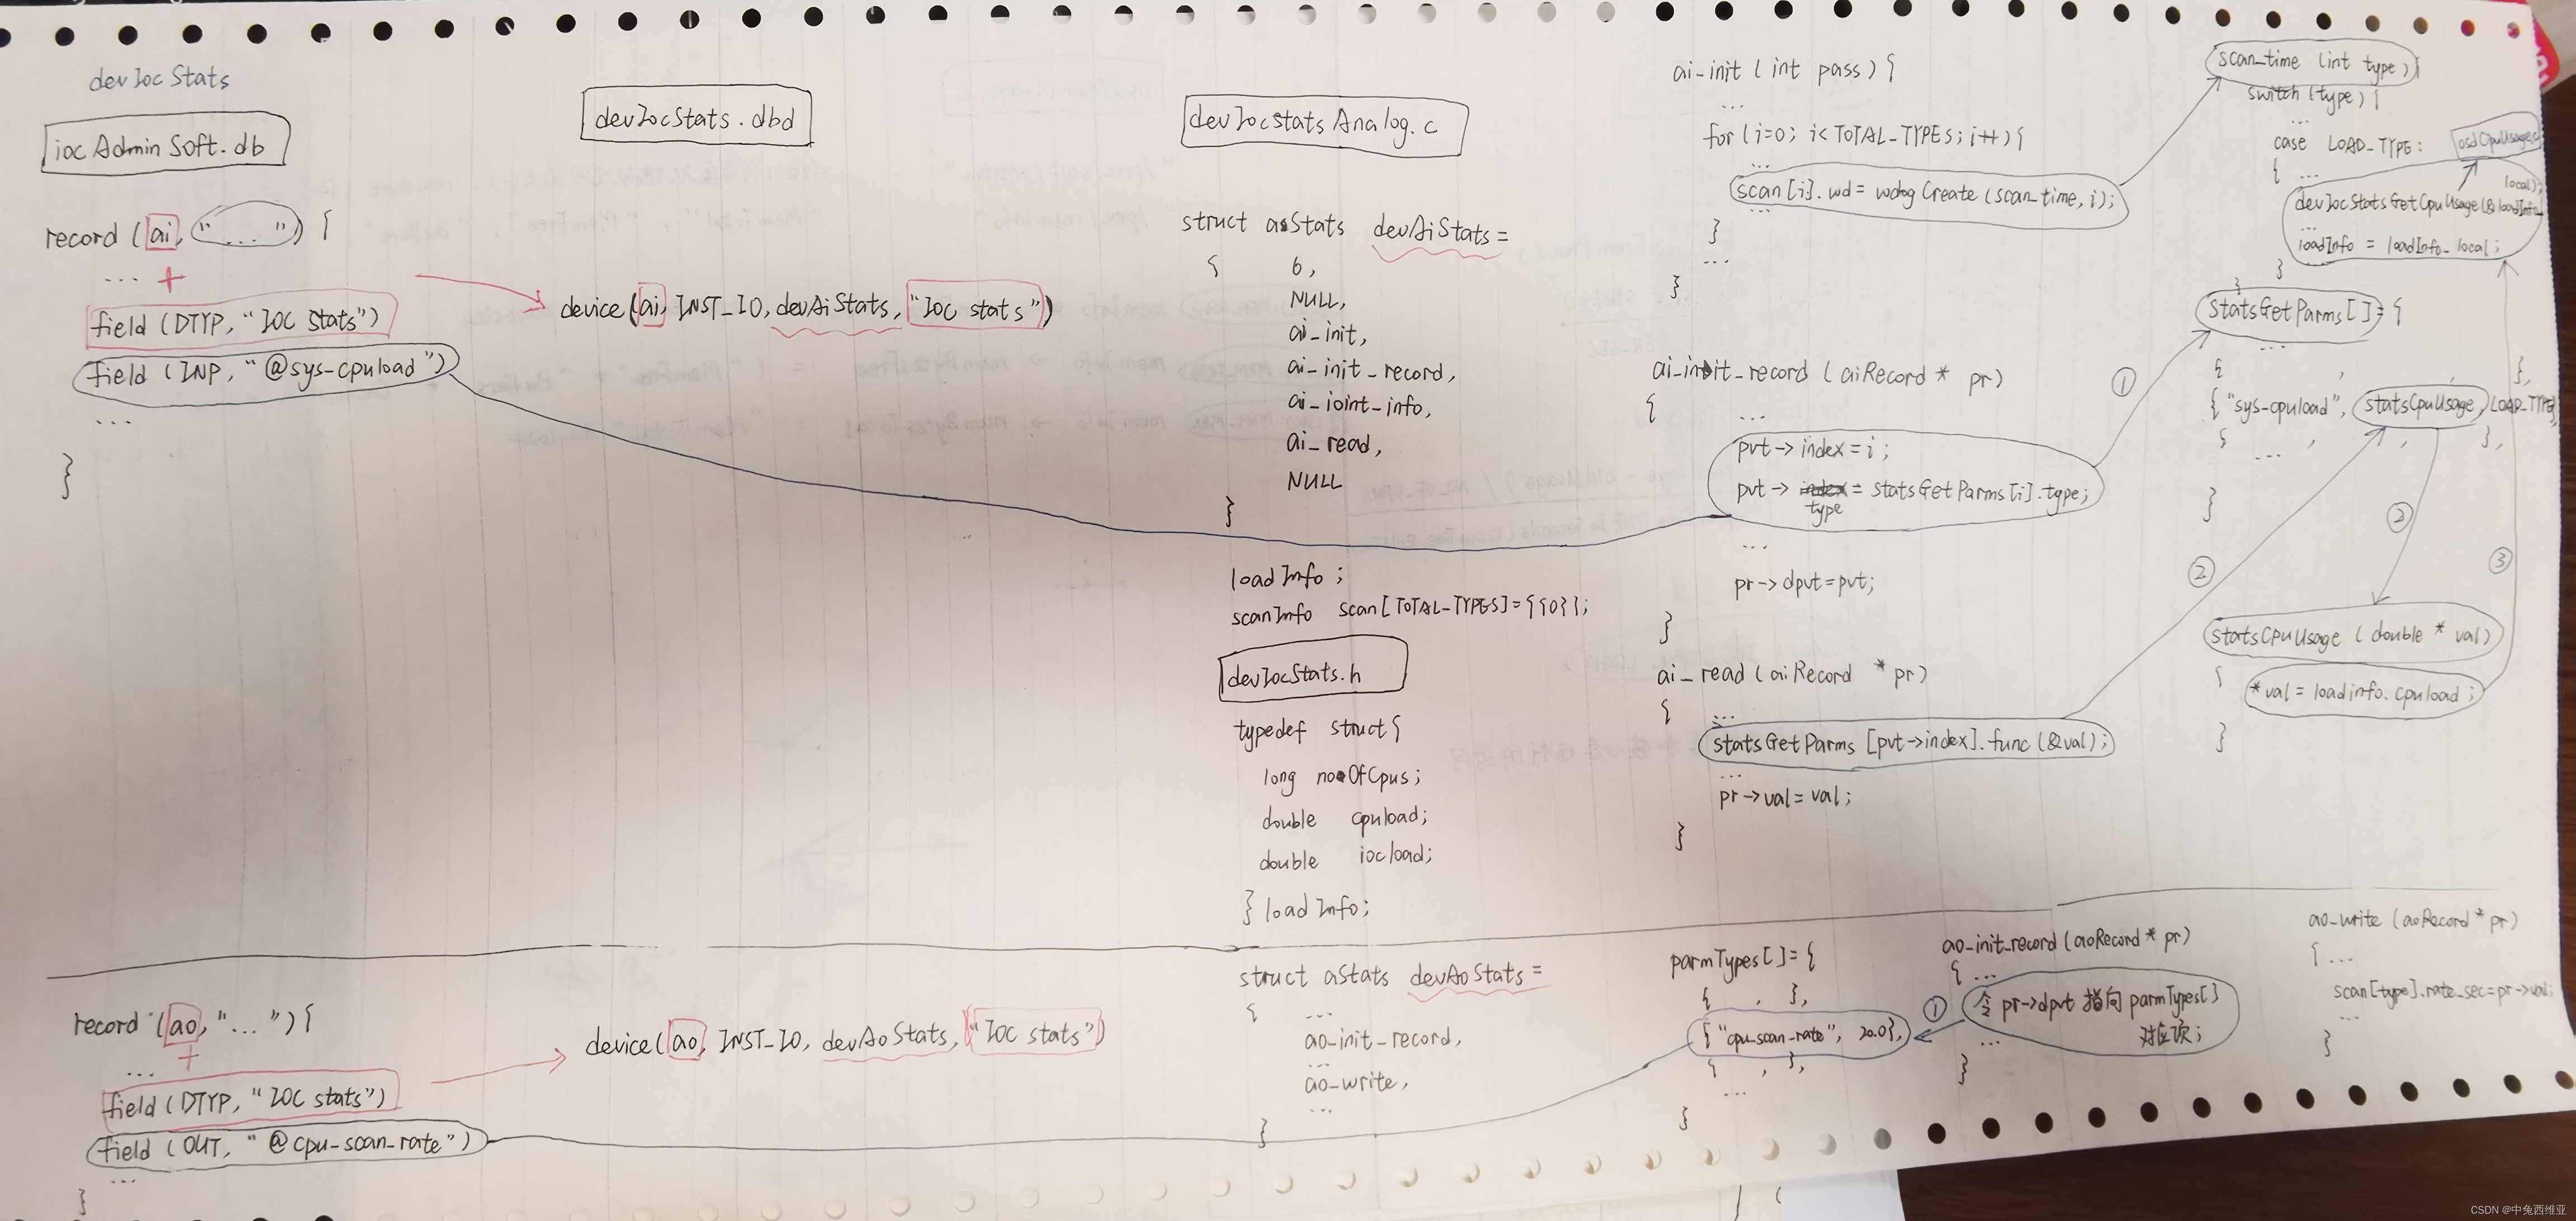 devIocStats
iocAdminSoft.db
record (ai, "...") {
...
field (DTYP, "IOC stats")
field (INP, "@sys-cpuload")
...
}
devIocStats.dbd
device(ai, INST_IO, devAiStats, "IOC stats")
devIocStatsAnalog.c
struct aStats devAiStats =
{ 6,
NULL,
ai_init,
ai_init_record,
ai_ioint_info,
ai_read,
NULL
}
loadInfo ;
scanInfo scan[TOTAL_TYPES]={{0}};
devIocStats.h
typedef struct{
long noOfCpus;
double cpuload;
double iocload;
} loadInfo;
ai_init (int pass) {
...
for (i=0; i<TOTAL_TYPES; i++){
...
scan[i].wd = wdogCreate (scan_time, i);
...
}
...
}
ai_init_record (aiRecord * pr)
{ ...
pvt -> index = i ;
pvt -> type = statsGetParms[i].type;
...
pr -> dpvt = pvt;
}
ai_read (aiRecord * pr)
{ ...
statsGetParms [pvt->index].func (&val);
...
pr -> val = val ;
}
scan_time (int type) {
switch (type) {
...
case LOAD_TYPE: osdCpuUsage.c
{ ...
devIocStatsGetCpuUsage(&loadInfo_local);
...
loadInfo = loadInfo_local ;
}
}
①
statsGetParms[] = {
...
{ , , },
{ "sys-cpuload", statsCpuUsage, LOAD_TYPE},
{ , , },
...
}
②
②
③
statsCpuUsage ( double * val)
{
*val = loadinfo.cpuload ;
}
record (ao, "...") {
...
field (DTYP, "IOC stats")
field (OUT, "@cpu-scan-rate")
...
}
device(ao, INST_IO, devAoStats, "IOC stats")
struct aStats devAoStats =
{
...
ao_init_record,
...
ao_write,
...
}
parmTypes[] = {
{ , },
{ "cpu_scan-rate", 20.0},
{ , },
...
}
ao_init_record (aoRecord * pr)
{ ...
① 令 pr->dpvt 指向 parmTypes[]
对应项;
...
}
ao_write (aoRecord * pr)
{ ...
scan[type].rate_sec = pr->val;
...
}
CSDN @中兔西维亚